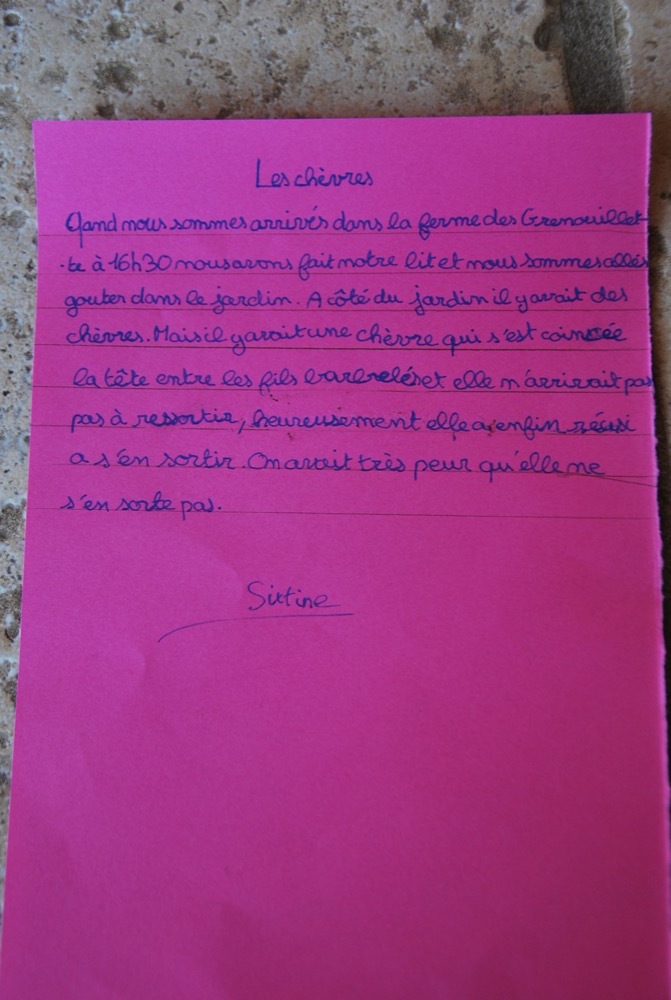 Les chèvres
Qand nous sommes arrivés dans la ferme des Grenouillet-
-te à 16h30 nous avons fait notre lit et nous sommes allés
gouter dans le jardin. A côté du jardin il y avait des
chèvres. Mais il y avait une chèvre qui s'est coincée
la tête entre les fils barbelés et elle n'arrivait pas
pas à ressortir, heureusement elle a enfin réussi
a s'en sortir. On avait très peur qu'elle ne
s'en sorte pas.
Sixtine